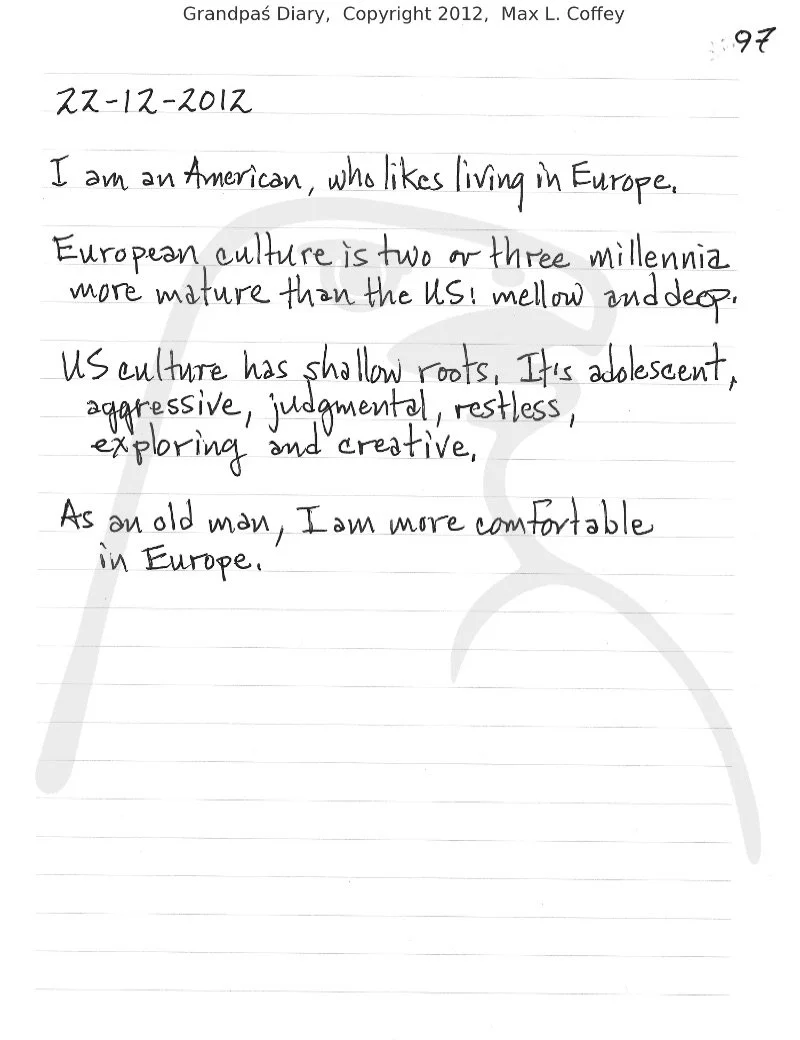 Grandpaś Diary,  Copyright 2012,  Max L. Coffey
97
22-12-2012
I am an American, who likes living in Europe.
European culture is two or three millennia
more mature than the US: mellow and deep.
US culture has shallow roots. It's adolescent,
aggressive, judgmental, restless,
exploring and creative.
As an old man, I am more comfortable
in Europe.